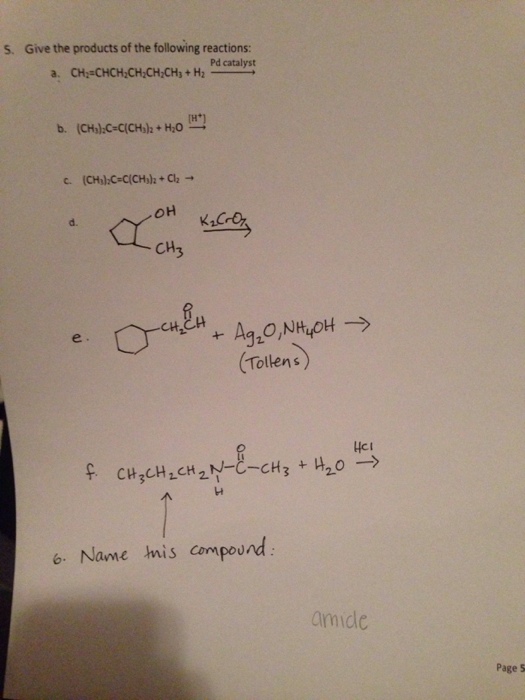 5. Give the products of the following reactions:
Pd catalyst
a. CH₂=CHCH₂CH₂CH₂CH₃ + H₂
[H⁺]
b. (CH₃)₂C=C(CH₃)₂ + H₂O →
c. (CH₃)₂C=C(CH₃)₂ + Cl₂ →
d.
OH
CH₃
K₂CrO₇
e.
O
-CH₂CH + Ag₂O, NH₄OH →
(Tollens)
O HCl
f. CH₃CH₂CH₂N-C-CH₃ + H₂O →
H
6. Name this compound:
amide
Page 5